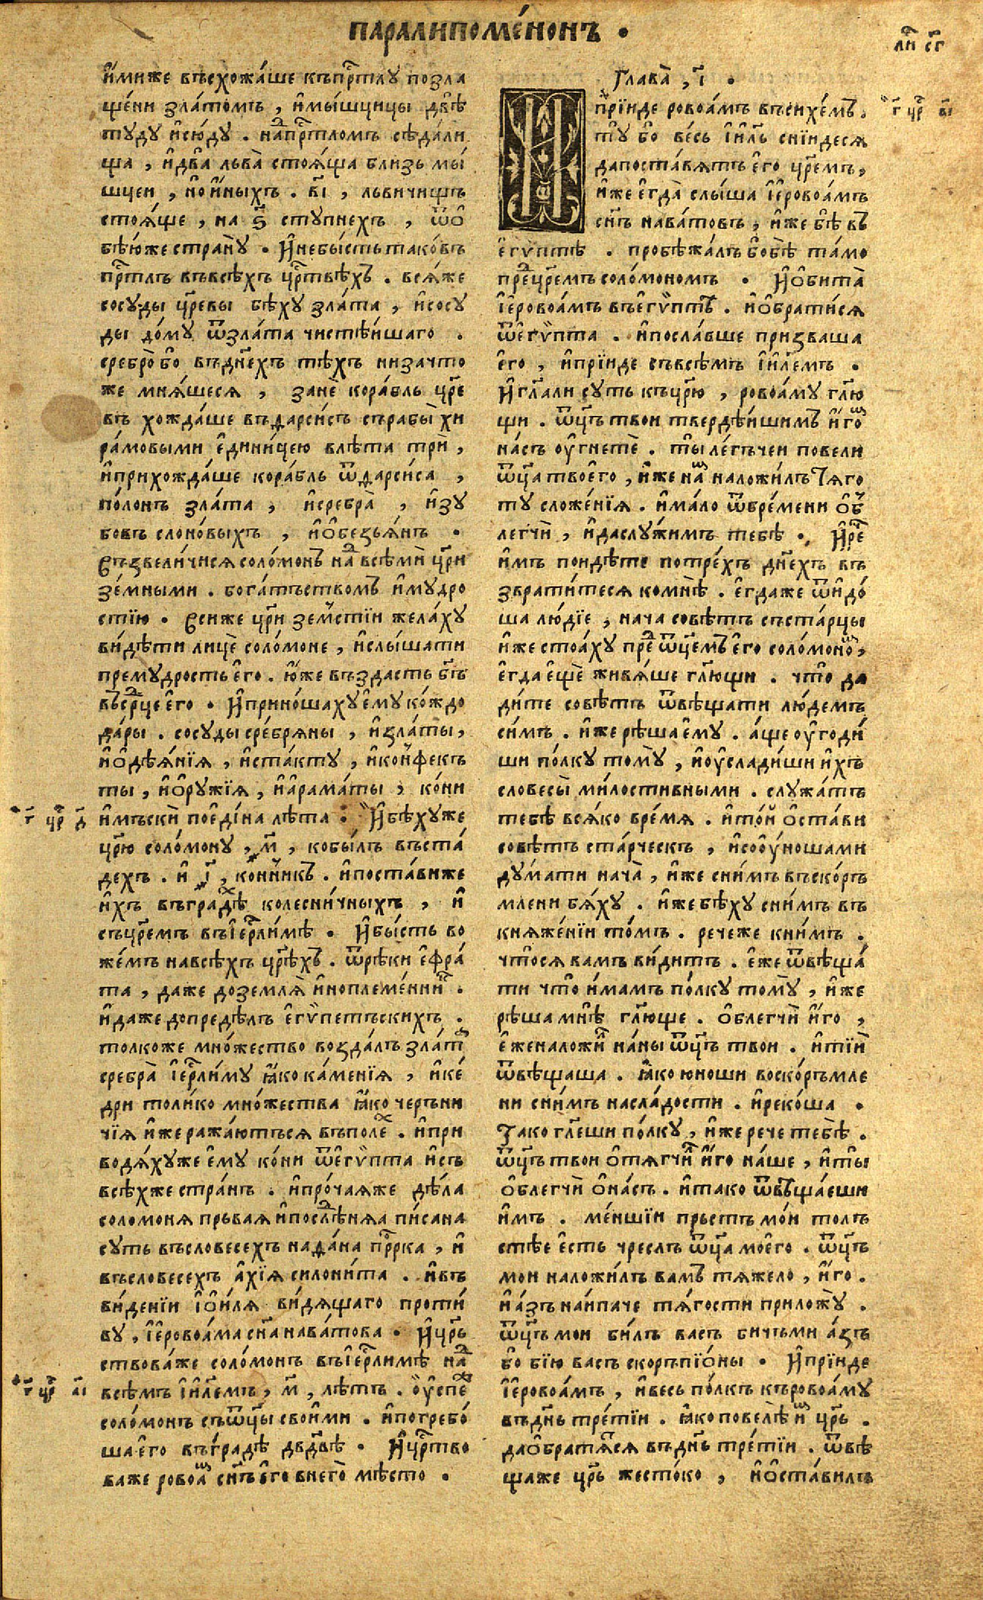 паралипоме́нонъ .
и҆́миже въсхожа́ше къпр҇тлу позла
ще́ни зла́томъ , и҆мы́шцицы двѣ̀
ту́ду и҆сю́ду . на́пр҇тломъ сѣда́ли
ща , и҆два̀ льва̀ стоѧ́ща близь мы́
шцеи , но и҆́ныхъ . в҃і , львичищь
стоѧ́ще , на ѕ҃ ступнехъ , ѿо҆
бѣ́юже страну̀ . И҆небы́сть тако́въ
пр҇тлъ въвсѣ́хъ цр҇твѣхъ . всѧ́же
сосу́ды цр҃евы бѣ́ху зла́та , и҆сосу́
ды до́му ѿзла́та чистѣ́ишаго .
сребро̀ бо въдн҃ехъ тѣ́хъ низачто
же мнѧ́щесѧ , занѐ кора́бль цр҃е
въ хожда́ше въдарси́съ сърабы̀ хи
ра́мовыми е҆дини́цею влѣ́та трѝ ,
и҆прихожда́ше кора́бль ѿдарси́са ,
по́лонъ зла́та , и҆сребра̀ , и҆зу
бовъ слоно́выхъ , и҆о҆безьѧ́нъ .
Въ́звели́чисѧ соло́монъ на всѣ́ми цр҃и
зе́мными . бога́тъствомъ и҆му́дро
стїю . Вси́же цр҃и зе́мстїи жела́ху
ви́дѣти лицѐ соло́моне , и҆слы́шати
прему́дрость е҆го . ю҆́же въ́здасть бг҃ъ
въср҃це е҆го . И҆приноша́ху е҆му ко́ждо
да́ры . сосу́ды сре́брѧны , и҆зла́ты ,
и҆о҆дѣѧ́нїѧ , и҆ста́кту , и҆ко́нфект
ты , и҆о҆ру́жїѧ , и҆а҆рама́ты , ко́ни
и҆мъскѝ пое҆ді́на лѣ́та . И҆бѣ́хуже
цр҃ю соло́мону , м҃ , кобы́лъ въста́
дехъ . и҆ і҃ , ко́нникъ . и҆поста́виже
и҆хъ въгра́дѣ колесни́чныхъ , и҆
съцр҃емъ въі҆ер҇лимѣ . И҆бы́сть во
же́мъ навсѣ́хъ цр҃ѣхъ . ѿрѣ́ки е҆фра́
та , даже доземлѧ̀ и҆ноплеме́нни҇ .
и҆даже допредѣ́лъ е҆гѵ́петъскихъ .
толкоже мно́жество возда́лъ злат
сребра̀ і҆ер҇лиму ꙗ҆́ко ка́менїѧ , и҆ке́
дри толи́ко мно́жества ꙗ҆́ко черъни
чїѧ и҆же ража́ютъсѧ въпо́ле . и҆при
водѧ́хуже е҆му ко́ни ѿе҆гѵ́пта и҆съ
всѣ́хже стра́нъ . и҆про́чаѧже дѣ́ла
соломонѧ прьваѧ и҆послѣ́днѧа пи́сана
суть въсловесехъ нада́на пр҇рка , и҆
въсловесехъ а҆хі́ѧ силони́та . и҆въ
ви́денїи і҆о҆и́лѧ ви́дѧщаго проти́
ву , і҆ерово́ама сн҃а нава́това . И҆цр҃ь
ствова́же соло́монъ въі҆ер҇лимѣ на
всѣ́мъ і҆и҃лемъ , м҃ , лѣ́тъ . оу҆спе́
соло́монъ съѿц҃ы свои́ми . и҆погребо́
ша е҆го въгра́дѣ дв҃двѣ . И҆цр҇тво
важе ровоа сн҃ъ е҆го внего̀ мѣ́сто .
лѝ сг҃
·г҃ цр҇ д҃
·г҃ цр҇ а҃і
Глава̀ , і҃ .
И҆прїиде рово́амъ въсихе́мъ .
ту̀ бо весь і҆и҃ль сни́идесѧ
дапоста́вѧтъ е҆го цр҃емъ ,
и҆́же е҆гда̀ слы́ша і҆ерово́амъ
сн҃ъ нава́товъ , и҆же бѣ̀ въ
е҆гѵ́птѣ . пробѣжа́лъ бо́бѣ та́мо
пре́цр҃емъ соло́мономъ . И҆о҆бита̀
і҆ерово́амъ въе҆гѵ́птѣ . и҆о҆брати́сѧ
ѿе҆гѵ́пта . и҆посла́вше призваша
е҆го , и҆прїиде съвсѣ́мъ і҆и҃лемъ .
И҆гл҃али суть къцр҃ю , рово́аму гл҃ю
щи . ѿц҃ъ твои тверде́ишимъ и҆́го
на́съ оу҆гнетѐ . ты̀ ле́гъчеи повели
ѿц҃а твое҆го , и҆́же на наложи́лъ тѧ́го
ту сложе́нїѧ . и҆ма́ло ѿбре́мени о҆б
легчѝ , и҆даслу́жимъ тебѣ̀ . И҆ре҇
и҆мъ поидѣ́те потре́хъ дн҃ехъ въ
звратите́сѧ комнѣ̀ . е҆гдаже ѿидо́
ша лю́дїе , нача совѣ́тъ съста́рцы
и҆же стоа́ху пре ѿц҃емъ е҆го соло́моно ,
е҆гда е҆щѐ живѧ́ше гл҃ющи . что̀ да
ди́те совѣ́тъ ѿвѣща́ти лю́демъ
си́мъ . и҆же рѣ́ша е҆му . а҆ще оу҆годи́
ши по́лку тому̀ , и҆оу҆слади́ши и҆хъ
словесы̀ ми́лостивными . слу́жатъ
тебѣ̀ всѧ́ко вре́мѧ . и҆то́и о҆ста́ви
совѣ́тъ ста́рческъ , и҆соо҆у́ношами
ду́мати нача̀ , и҆же сни́мъ въско́ръ
млени бѧ́ху . и҆же бѣ́ху сни́мъ въ
княже́нїи то́мъ . речеже кни́мъ .
что̀сѧ вамъ ви́дитъ . е҆же ѿвѣща́
ти что̀ и҆мамъ по́лку тому̀ , и҆же
рѣ́ша мнѣ̀ гл҃юще . о҆блегчѝ и҆́го ,
е҆женаложи на́ны ѿц҃ъ твои . и҆тіѝ
ѿвѣща́ша . ꙗ҆́ко ю́ноши воско́ръмле
ни сни́мъ насла́дости . и҆реко́ша .
Тако гл҃еши по́лку , и҆же рече тебѣ̀ .
ѿц҃ъ твои о҆тѧгчи и҆́го на́ше , и҆ты̀
о҆блегчѝ о҆на́съ . и҆та́ко ѿвѣща́еши
и҆мъ . ме́ншїи прьстъ мо́и толъ
стѣ́е е҆сть чреслъ ѿц҃а мое҆го . ѿц҃ъ
мои наложи́лъ вамъ тѧжело , и҆́го .
и҆а҆зъ наи́паче тѧ́гости приложу̀ .
ѿц҃ъ мои би́лъ васъ бичьми а҆́зъ
бо бі́ю васъ скорьпїо́ны . И҆прїиде
і҆ерово́амъ , и҆весь по́лкъ кърово́аму
въдн҃ь тре́тїи . ꙗ҆́ко повелѣ̀ и цр҃ь .
дао҆брати́сѧ въдн҃ь тре́тїи . ѿвѣ
щаже цр҃ь жесто́ко , и҆о҆стави́лъ
·г҃ цр҇ в҃і